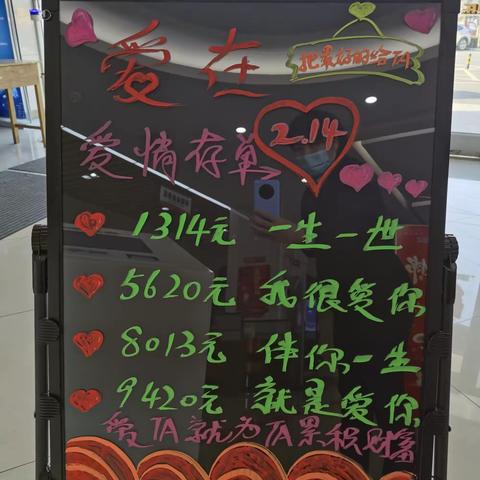 爱在
把最好的给TA
2.14
爱情存单
1314元 一生一世
5620元 我很爱你
8013元 伴你一生
9420元 就是爱你
爱TA就为TA累积财富